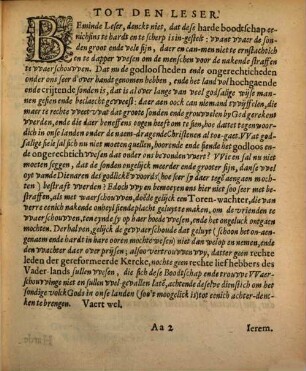 TOT DEN LESER.
BEminde Leser, danckt niet, dat dese harde boodtschap ee-
nichsins te hardt en te scherp is in-gestelt: want waer de son-
den groot ende vele sijn, daer en can-men niet te ernstachtich
en te dapper wesen om de menschen voor de nakende straffen
te waerschouwen. Dat nu de godloosheden ende ongerechticheden
onder ons seer d'over handt genomen hebben, ende het landt vol hochgaende
ende crijtende sonden is, dat is al over lange van veel godsalige wijse mann-
en gesien ende beclaecht geweest: daer aen oock can niemand twijffelen, die
maer te rechte weet wat dat groote sonden ende grouwelen by God gerekent
werden, ende die daer beneffens oogen heeft om te sien, hoe dattet tegenwoor-
dich in alle landen onder de naem-dragende Christenen al toe-gaet. Wat god-
salige siele sal sich niet moeten quellen, hoorende ende siende het godloos en-
de ongerechtich wesen dat onder haer bevonden wert? Wie en sal nu niet
moeten seggen, dat de sonden engelijck meerder ende grooter sijn, dan se wel
oyt van de Dienaren des godlicken woordts, hoe seer sy daer tegens aengaen moch-
ten) bestraft werden? Edoch wy en bemoeyen ons hier niet soo seer met be-
straffen, als met waerschouwen, de selve gelijck een Toren-wachter, die van
verre eenich nakende onheyl siende placht geluyt te maken, om de vrienden te
waerschouwen, ten eynde sy op haer hoede wesen, ende het ongeluck ontgaen
mochten. Derhalven, gelijck de gewaerschoude dat geluyt (schoon het on-aen-
genaem ende hardt in hare ooren mochte wesen) niet dan wel op en nemen, ende
den wachter daer over prijsen; alsoo vertrouwen wy, datter geen rechte
leden der gereformeerde Kercke, nochte geen rechte lief hebbers des
Vader-lands sullen wesen, die sich dese Boodtschap ende trouwe Waer-
schouwinge niet en sullen wel gevallen laten, achtende de selve dienstich om het
sondige volck Gods in onse landen (soo 't moogelick is) tot eenich achter-denc-
ken te brengen. Vaert wel.
Aa 2
Ierem.